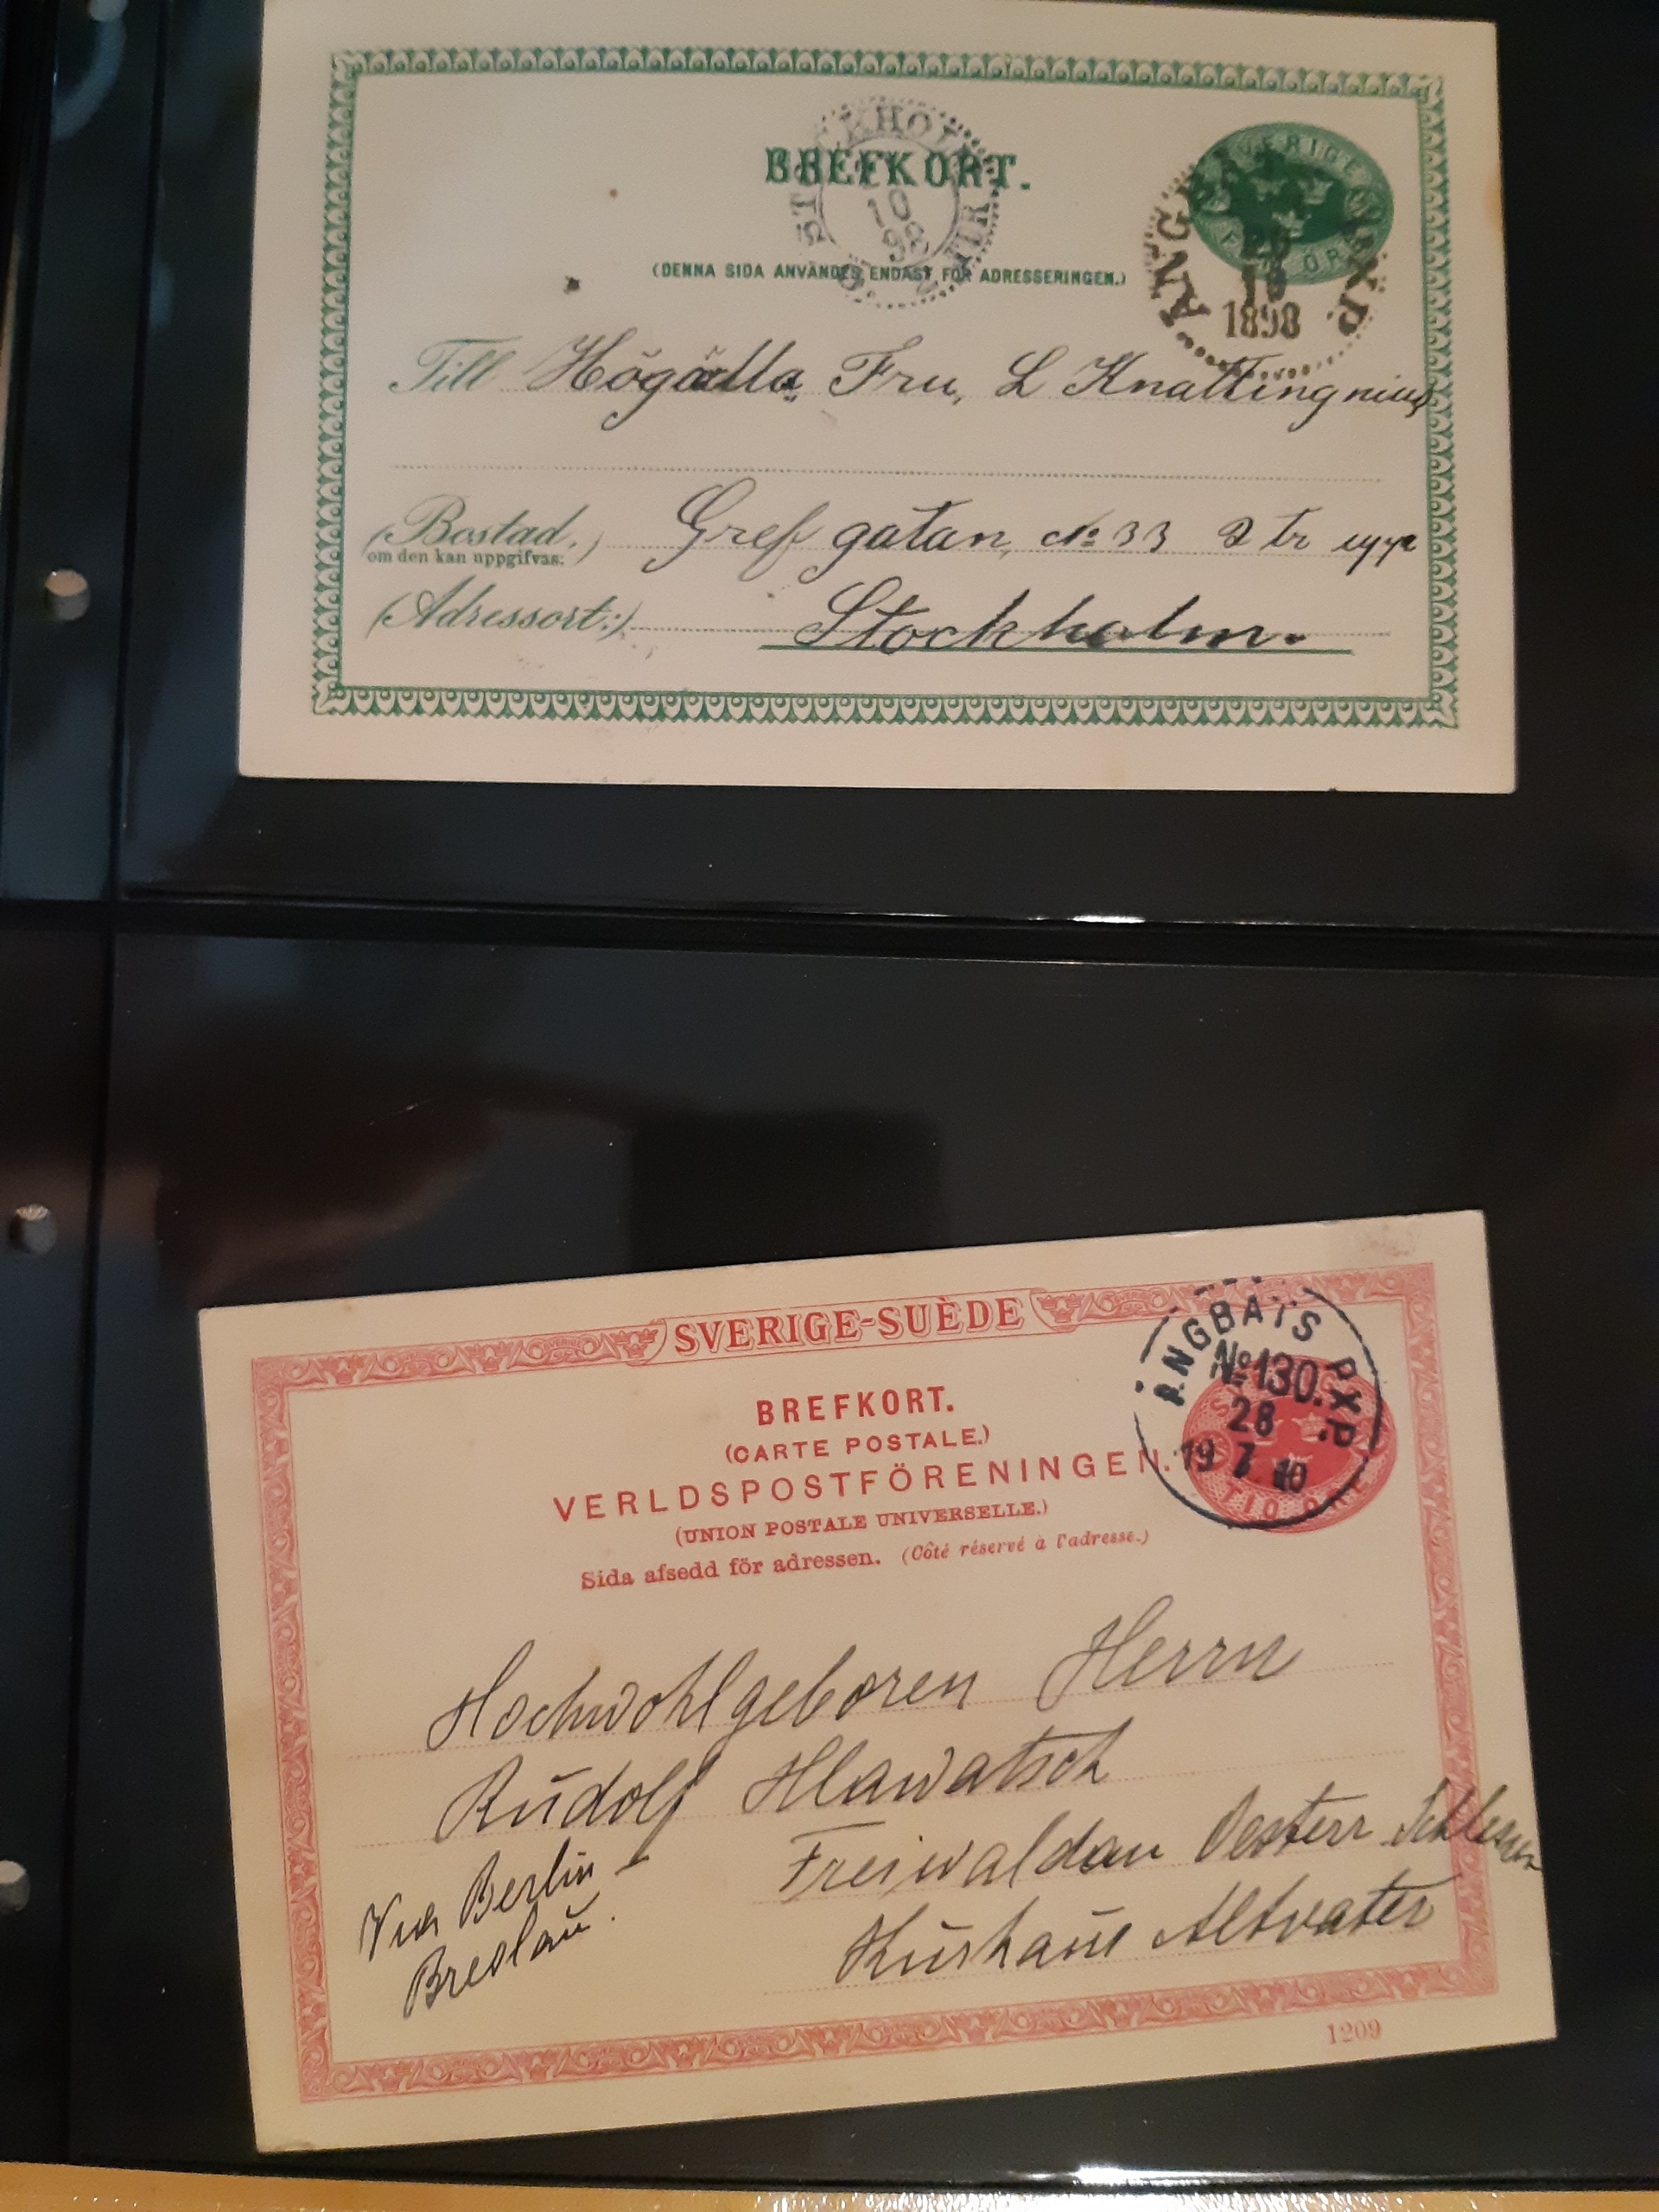 BREFKORT.
(DENNA SIDA ANVÄNDES ENDAST FÖR ADRESSERINGEN.)
SVERIGE
FEM ÖRE
ÅNGBÅTS PXP.
1898
STOCKHOLM
10
98
Till Högädla Fru, L Knattingnius
(Bostad,) Gref gatan, No 33 2 tr upp
om den kan uppgifvas:
(Adressort:) Stockholm.
SVERIGE-SUÈDE
BREFKORT.
(CARTE POSTALE.)
VERLDSPOSTFÖRENINGEN.
(UNION POSTALE UNIVERSELLE.)
Sida afsedd för adressen. (Côté réservé à l'adresse.)
ÅNGBÅTS PXP.
No 130.
28
19 7 10
TIO ÖRE
Hochwohlgeboren Herrn
Rudolf Hlawatsch
Via Berlin –
Breslau.
Freiwaldau Oesterr Schlesien
Kurhaus Altvater
1209